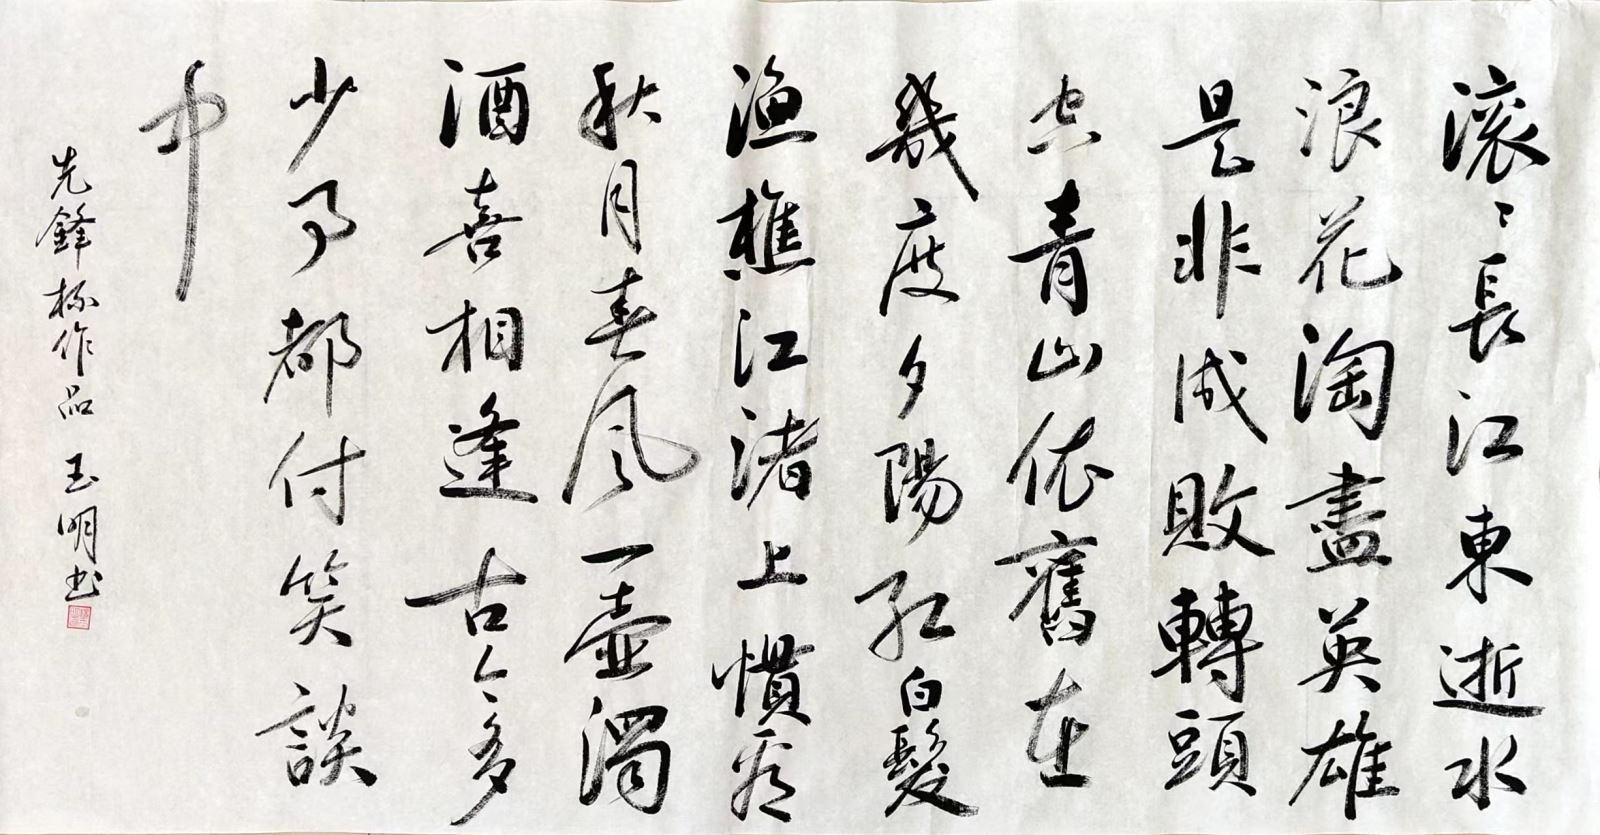 滚〻長江東逝水
浪花淘盡英雄
是非成敗轉頭
空青山依舊在
幾度夕陽紅白髮
渔樵江渚上慣看
秋月春风一壺濁
酒喜相逢古今多
少事都付笑談
中
先鋒杯作品 玉明书